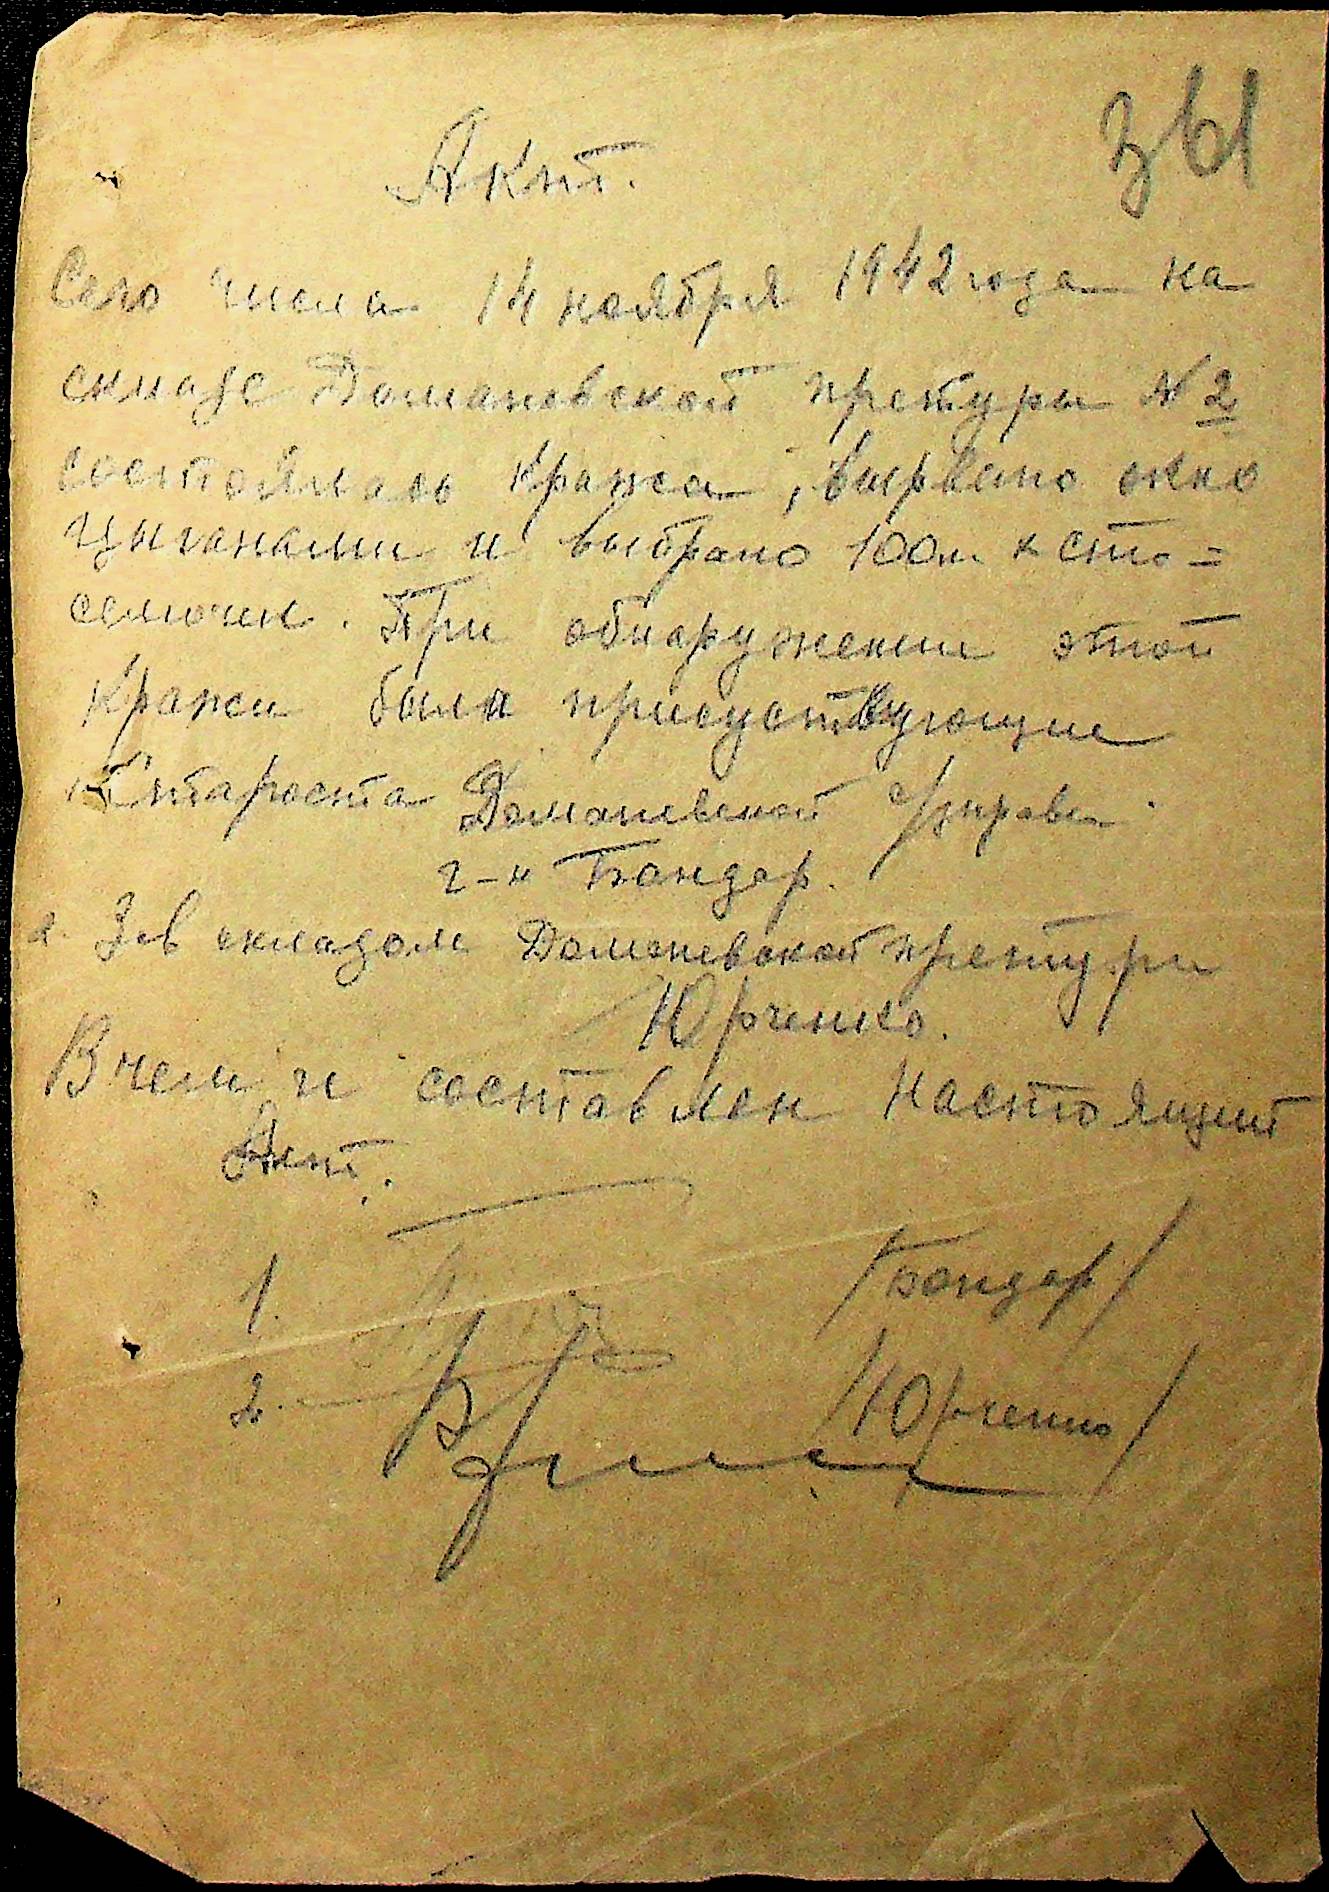 361
Акт.
Сего числа 14 ноября 1942 года на
складе Домановской претуры № 2
состоялась кража, вырвано окно
цыганами и выбрано 100
семечек. При обнаружении этой
кражи были присуствующие
1. Староста Доманевской Управы
г-н Бандар.
2. Зав складом Доманевской претури
Юрченко.
В чем и составлен настоящий
Акт.
1. /Бандар/
2. /Юрченко/